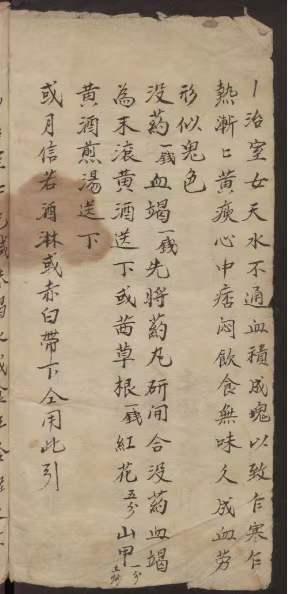 丨治室女天水不通血積成塊以致乍寒乍
熱漸〻黃瘦心中痞悶飲食無味久成血劳
形似鬼色
没药一錢血竭一錢先將药丸研间合没药血竭
為末滚黃酒送下或茜草根一錢紅花五分山甲一分五分
黃酒煎湯送下
或月信若淋或赤白帶下仝用此引